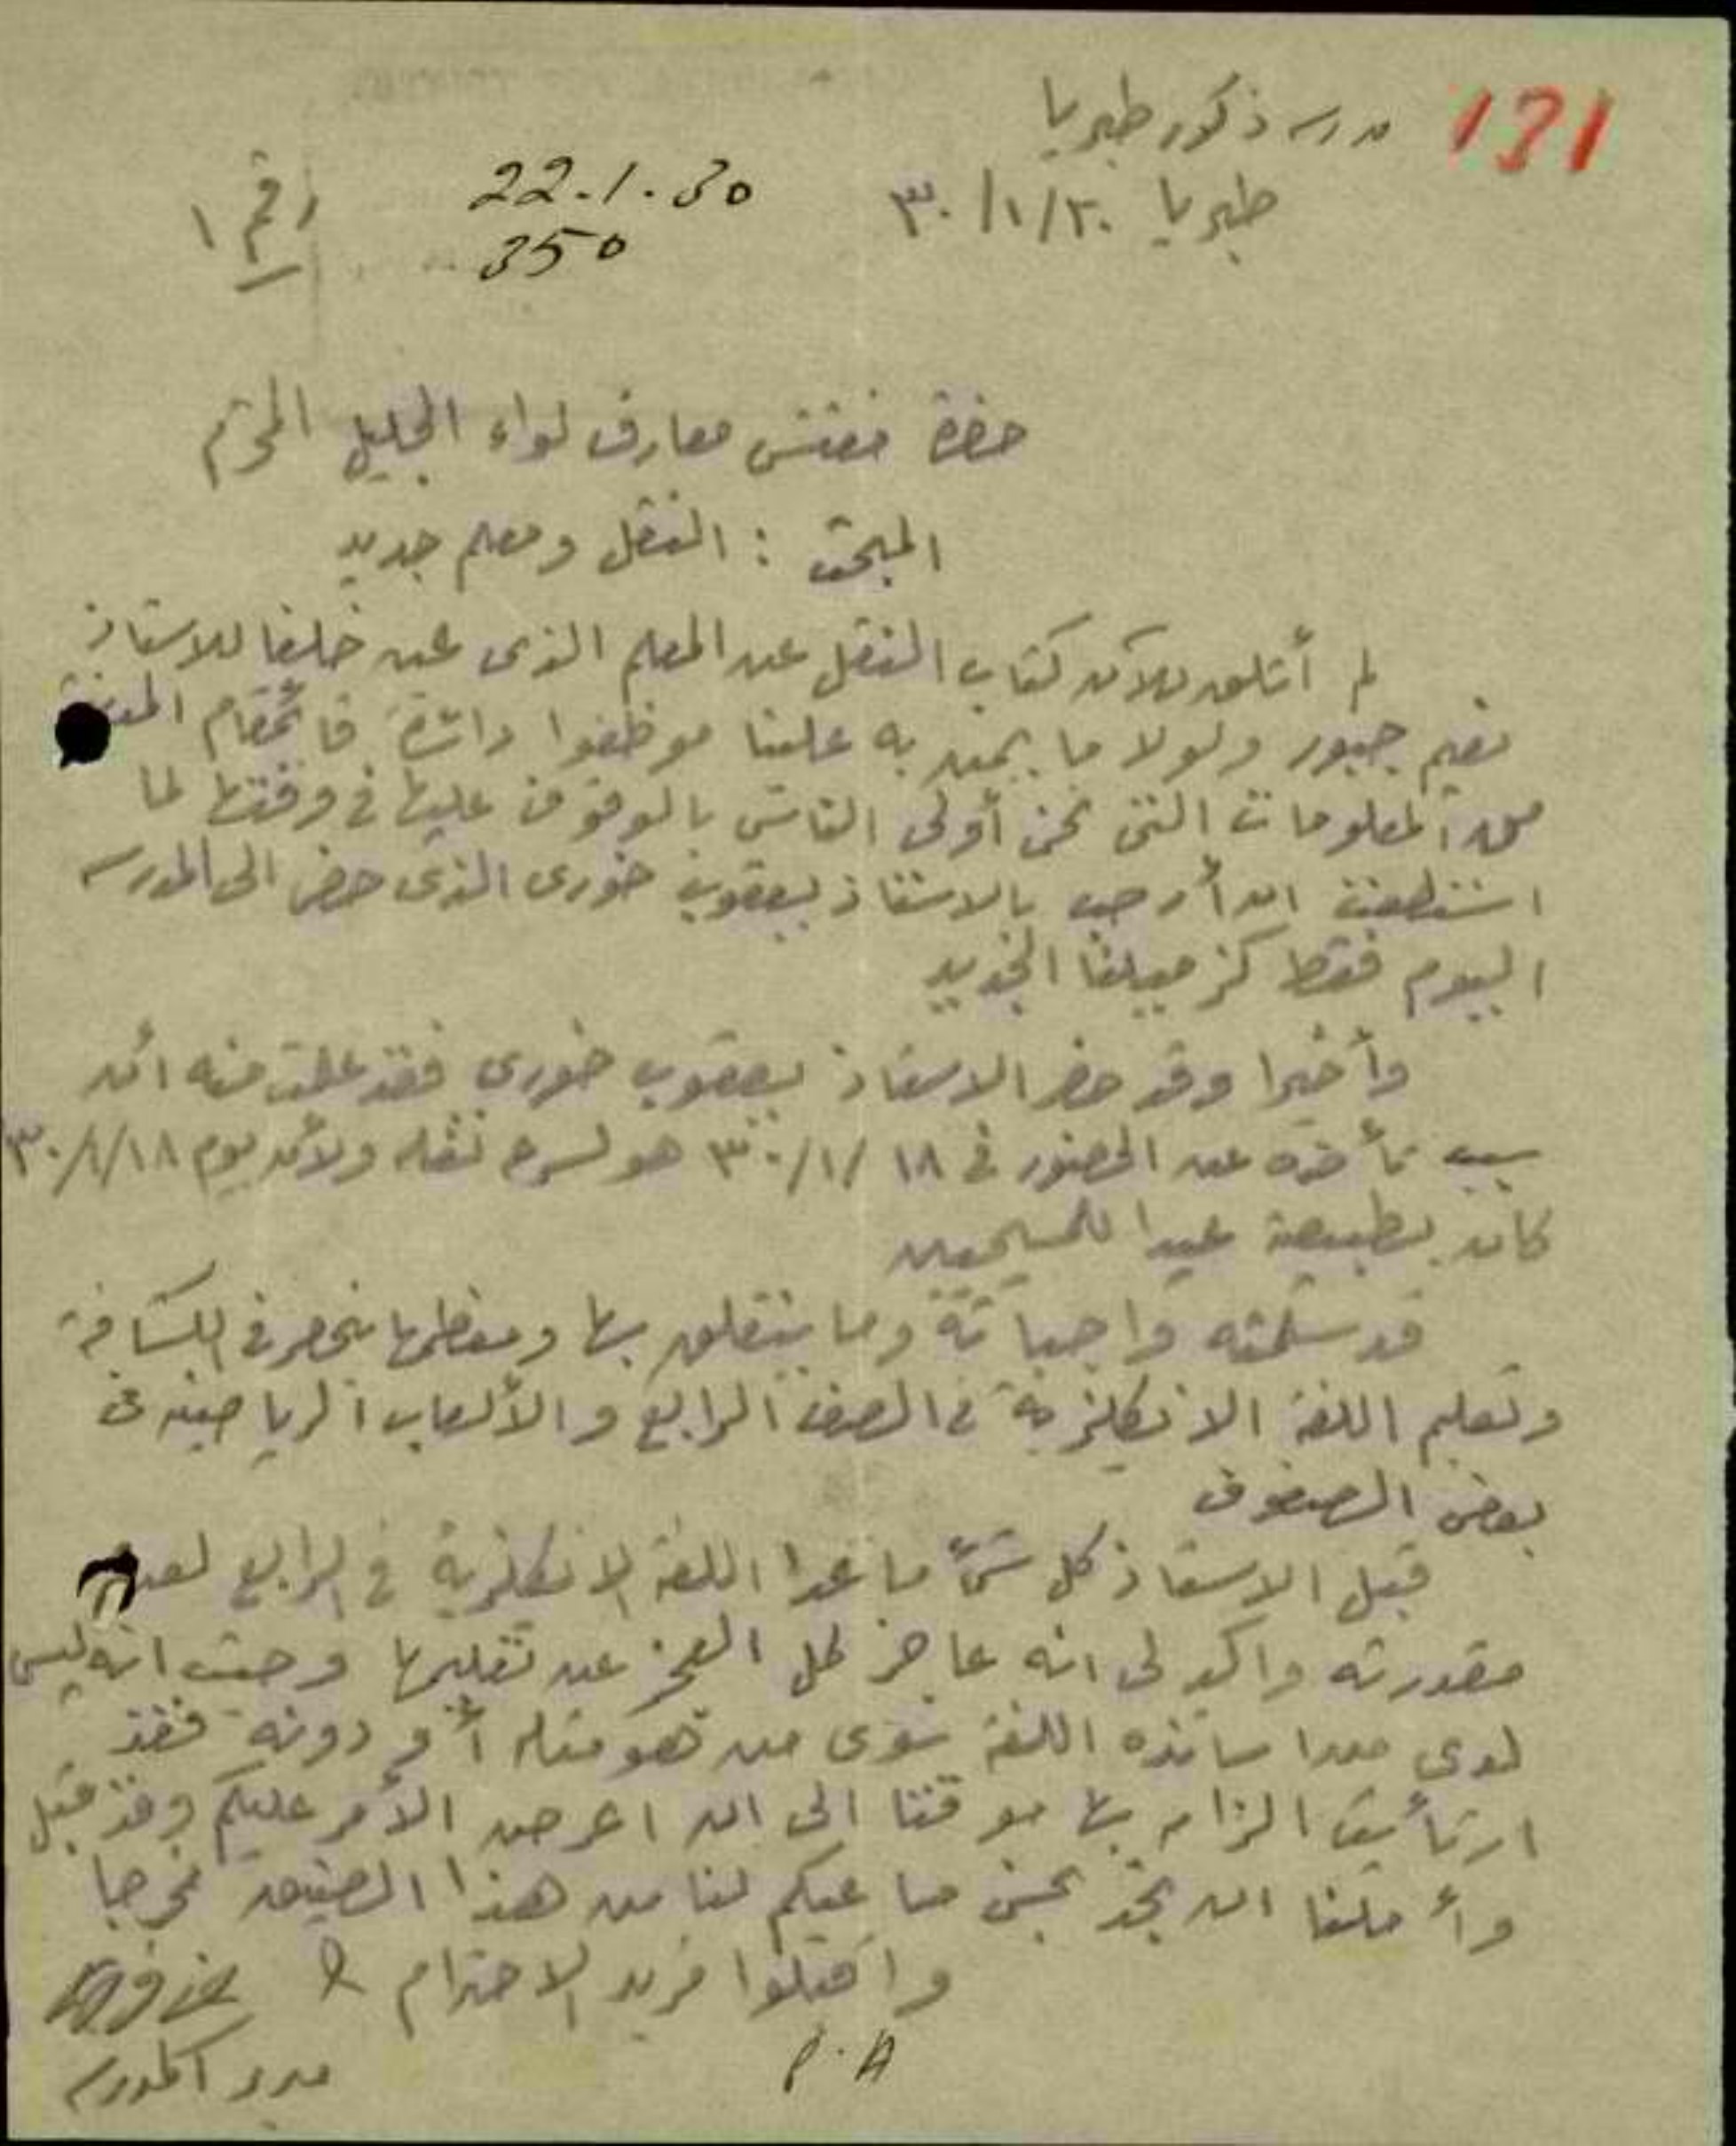 131
مدرسة ذكور طبريا
طبريا ٢٠/١/٣٠
22.1.30
350
رقم ١
حضرة مفتش معارف لواء الجليل المحترم
المبحث : النقل ومعلم جديد
لم أتلق للآن كتاب النقل عن المعلم الذى عين خلفا للاستاذ
نعيم جبور ولولا ما يمن به علينا موظفوا دائرة قائمقام
من المعلومات التى نحن أولى الناس بالوقوف عليها فى وقتها لما
استطعت ان أرحب بالاستاذ يعقوب خورى الذى حضر الى المدرسة
اليوم فقط كزميلنا الجديد
وأخيرا وقد حضر الاستاذ يعقوب خورى فقد علمت منه ان
سبب تأخره عن الحضور فى ١٨/١/٣٠ هو لسرعة نقله ولأن يوم ١٨/١/٣٠
كان بطبيعة عيدا للمسيحيين
قد سلمته واجباته وما يتعلق بها ومعظمها ينحصر فى الكشافة
وتعليم اللغة الانكليزية فى الصف الرابع والألعاب الرياضية فى
بعض الصفوف
قبل الاستاذ كل شئ ما عدا اللغة الانكليزية فى الرابع لعدم
مقدرته واكد لى انه عاجز كل العجز عن تعليمها وحيث انه ليس
لدى من اساتذه اللغة سوى من هو مثله أو دونه فقد
ارتأيت الزامه بها موقتا الى ان اعرض الأمر عليكم وقد قبل
وأملنا ان نجد بحسن مساعيكم لنا من هذا الضيق مخرجا
واقبلوا مزيد الاحترام
مدير المدرسة
P.A